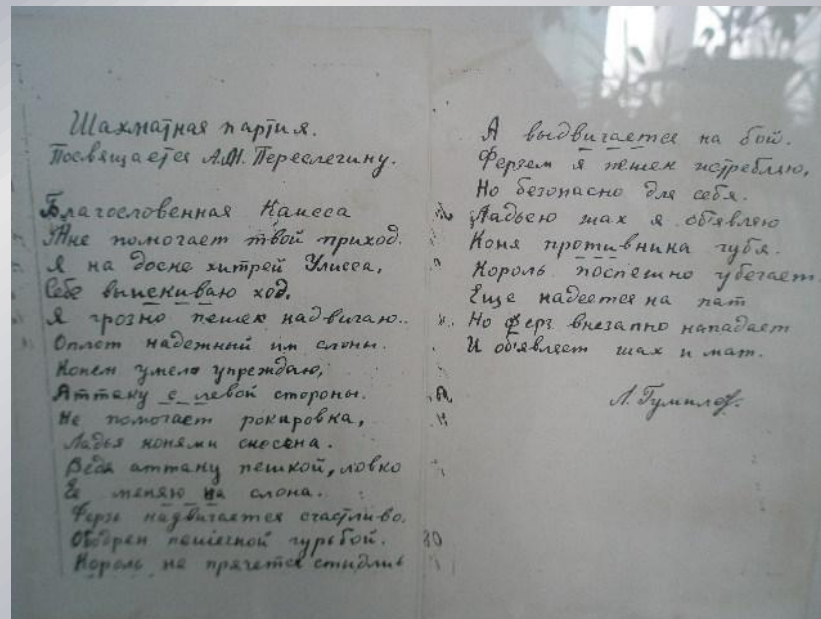 Шахматная партия.
Посвящается А.М. Переслегину.
Благословенная Каисса
Мне помогает твой приход.
Я на доске хитрей Улисса,
Себе выискиваю ход.
Я грозно пешек надвигаю..
Оплот надежный им слоны.
Конем умело упреждаю,
Аттаку с левой стороны.
Не помогает рокировка,
Ладья конями снесена.
Ведя аттаку пешкой, ловко
Ее меняю на слона.
Ферзь надвигается счастливо.
Ободрен пешечной гурьбой.
Король не прячется стыдлив
30
А выдвигается на бой.
Ферзем я пешек истребляю,
Но безопасно для себя.
Ладьею шах я об'являю
Коня противника губя.
Король поспешно убегает
Еще надеется на пат
Но ферзь внезапно нападает
И об'являет шах и мат.
Л. Гумилев.